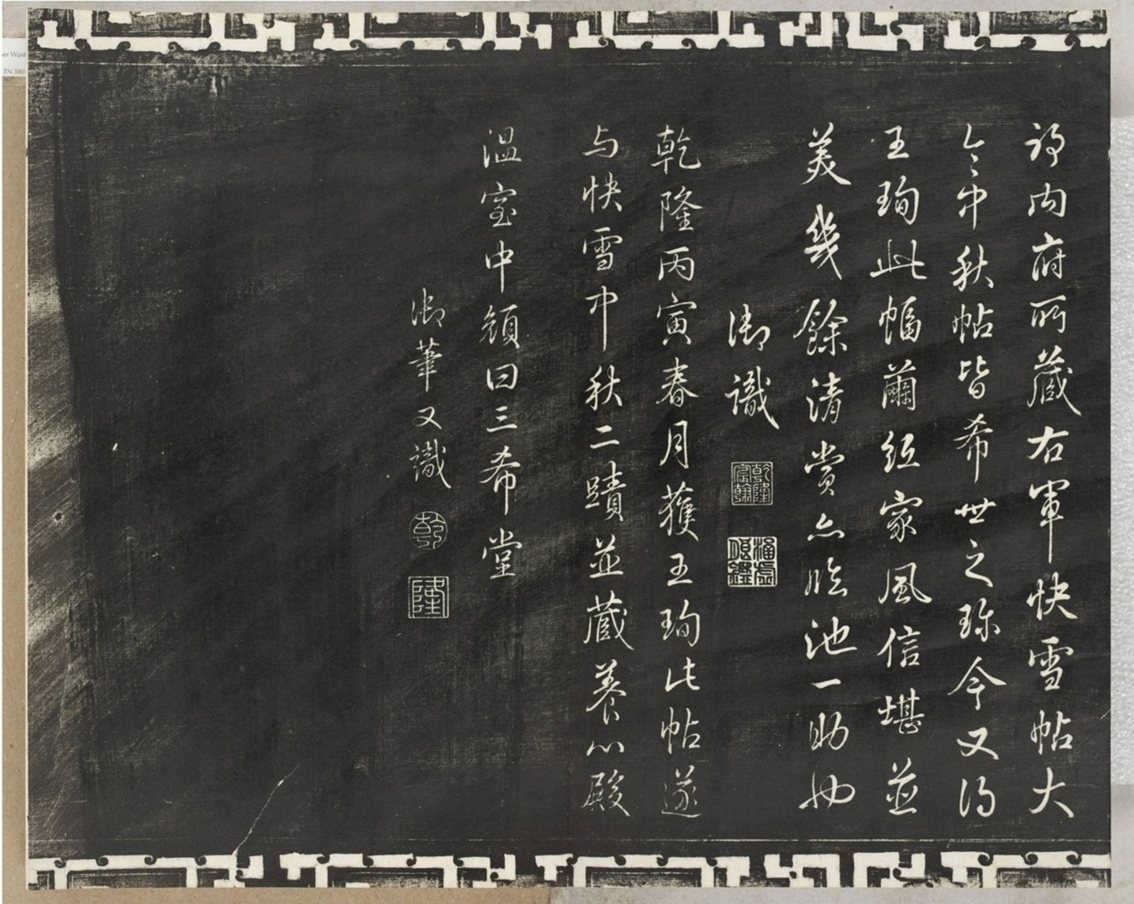 評內府所藏右軍快雪帖大
令中秋帖皆希世之珎今又得
王珣此幅繭紙家風信堪並
美幾餘清賞亦臨池一助也
御識
乾隆宸翰
乾隆丙寅春月獲王珣此帖遂
与快雪中秋二蹟並藏養心殿
溫室中顏曰三希堂
御筆又識
乾
隆
TN 380